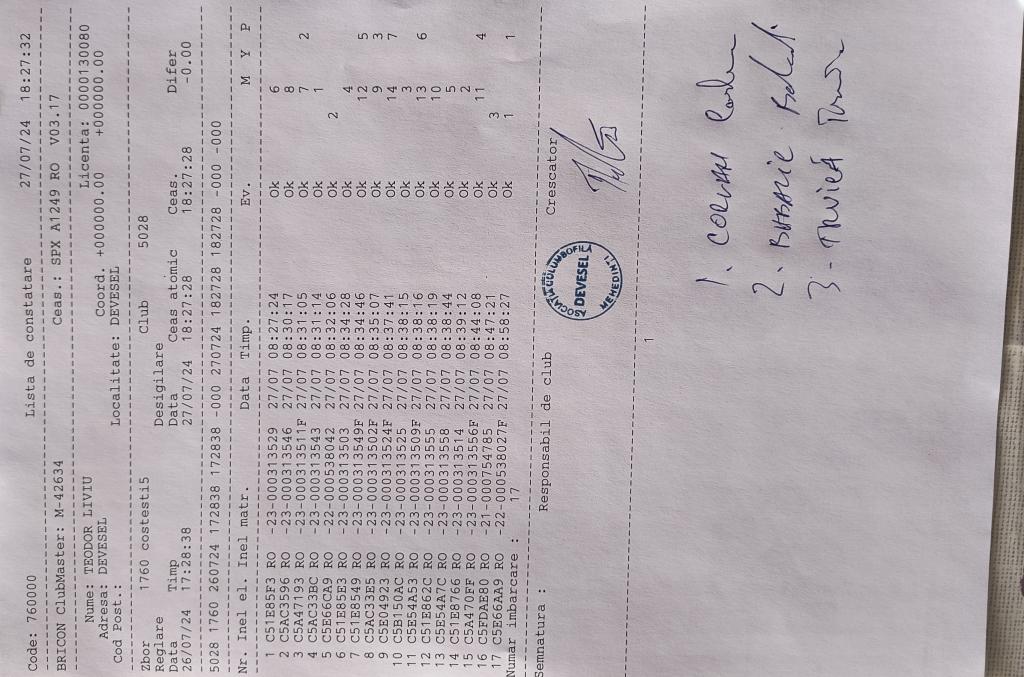 Code: 760000 Lista de constatare 27/07/24 18:27:32
BRICON ClubMaster: M-42634 Ceas.: SPX A1249 RO V03.17
Nume: TEODOR LIVIU Licenta: 0000130080
Adresa: DEVESEL Coord. +000000.00 +000000.00
Cod Post.: Localitate: DEVESEL
Zbor 1760 costesti5 Club 5028
Reglare Desigilare
Data Timp Data Ceas atomic Ceas. Difer
26/07/24 17:28:38 27/07/24 18:27:28 18:27:28 -0.00
5028 1760 260724 172838 172838 -000 270724 182728 182728 -000 -000
Nr. Inel el. Inel matr. Data Timp. Ev. M Y P
1 C51E85F3 RO -23-000313529 27/07 08:27:24 Ok 6
2 C5AC3596 RO -23-000313546 27/07 08:30:17 Ok 8
3 C5A47193 RO -23-000313511F 27/07 08:31:05 Ok 7 2
4 C5AC33BC RO -23-000313543 27/07 08:31:14 Ok 1
5 C5E66CA9 RO -22-000538042 27/07 08:32:06 Ok 2
6 C51E85E3 RO -23-000313503 27/07 08:34:28 Ok 4
7 C51E8549 RO -23-000313549F 27/07 08:34:46 Ok 12 5
8 C5AC33E5 RO -23-000313502F 27/07 08:35:07 Ok 9 3
9 C5E04923 RO -23-000313524F 27/07 08:37:41 Ok 14 7
10 C5B150AC RO -23-000313525 27/07 08:38:15 Ok 3
11 C5E54A53 RO -23-000313509F 27/07 08:38:16 Ok 13 6
12 C51E862C RO -23-000313555 27/07 08:38:19 Ok 10
13 C5E54A7C RO -23-000313558 27/07 08:38:44 Ok 5
14 C51E8766 RO -23-000313514 27/07 08:39:12 Ok 2
15 C5A470FF RO -23-000313556F 27/07 08:44:08 Ok 11 4
16 C5FDAE80 RO -21-000754785 27/07 08:47:21 Ok 3
17 C5E66AA9 RO -22-000538027F 27/07 08:58:27 Ok 1 1
Numar imbarcare : 17
Semnatura : Responsabil de club Crescator
DEVESEL
MEHEDINTI
1
1.
2.
3 -